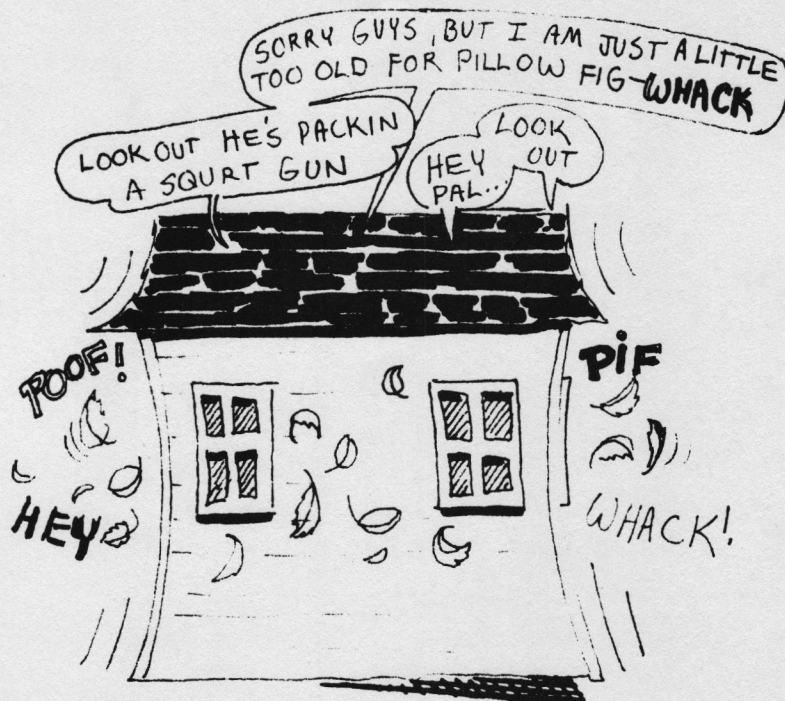 SORRY GUYS, BUT I AM JUST A LITTLE
TOO OLD FOR PILLOW FIG-WHACK
LOOK OUT HE'S PACKIN
A SQURT GUN
HEY
PAL..
LOOK
OUT
POOF!
PIF
HEY
WHACK!